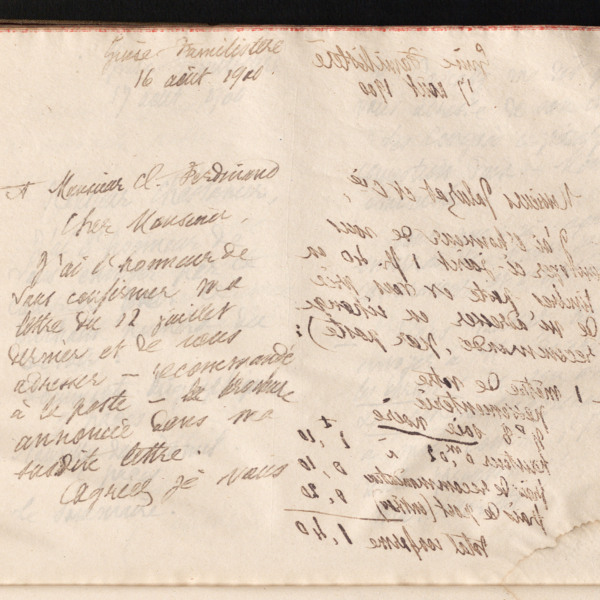 Guise Familistère
16 août 1900
A Monsieur A. Ferdinand
Cher Monsieur,
J'ai l'honneur de
vous confirmer ma
lettre du 12 juillet
dernier et de vous
adresser – recommandé
à la poste – la brochure
annoncée dans ma
susdite lettre.
Agréez je vous
Guise Familistère
17 août 1900
Messieurs et Cie,
J'ai l'honneur de vous
ci-joint 1 f. 40 en
timbres poste en vous
de m'adresser en échange
recommandé, par poste) :
1 mètre de votre
passementerie
soie noire
à 1,10
frais de recommandation 0,10
frais de port 0,20
total conforme 1,40